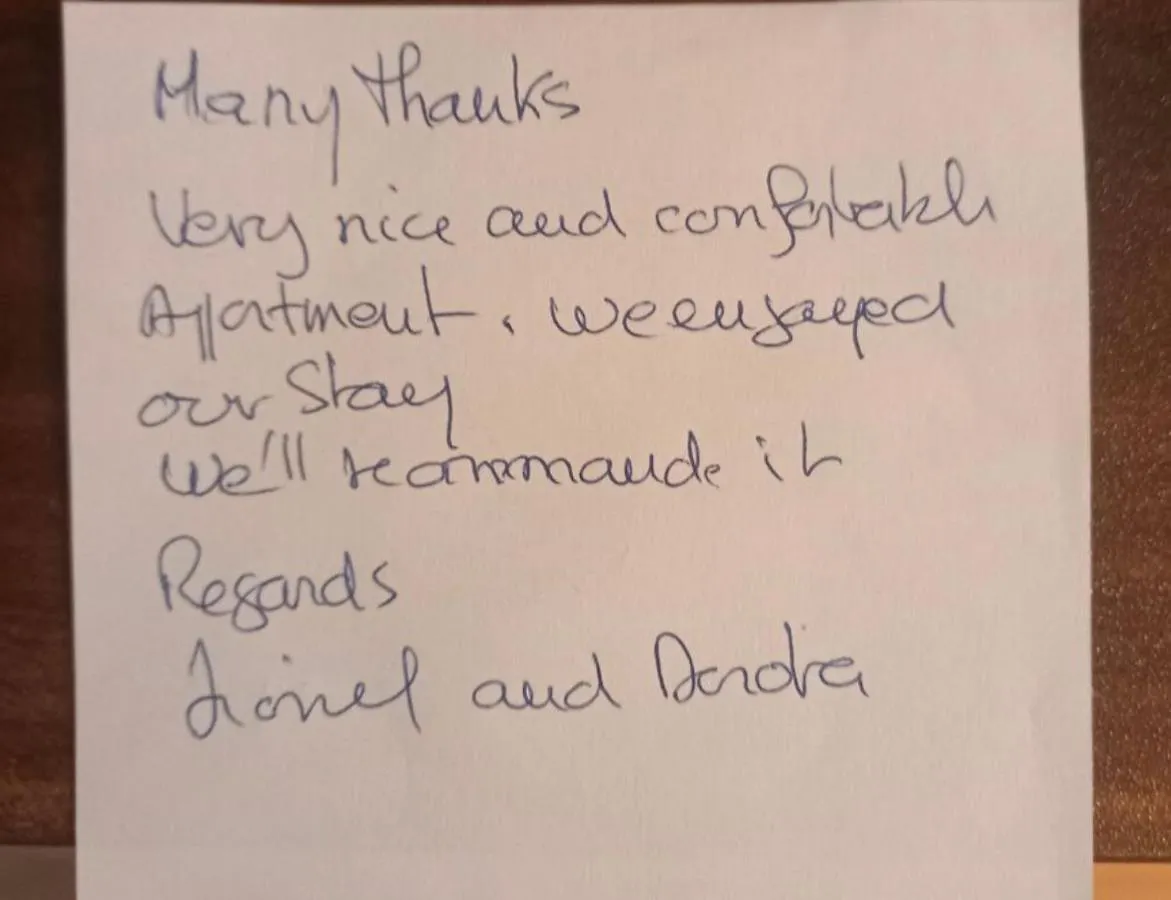 Many thanks
Very nice and confortable
Appatment. we enjoyed
our stay
We'll recommande it
Regards
Lionel and